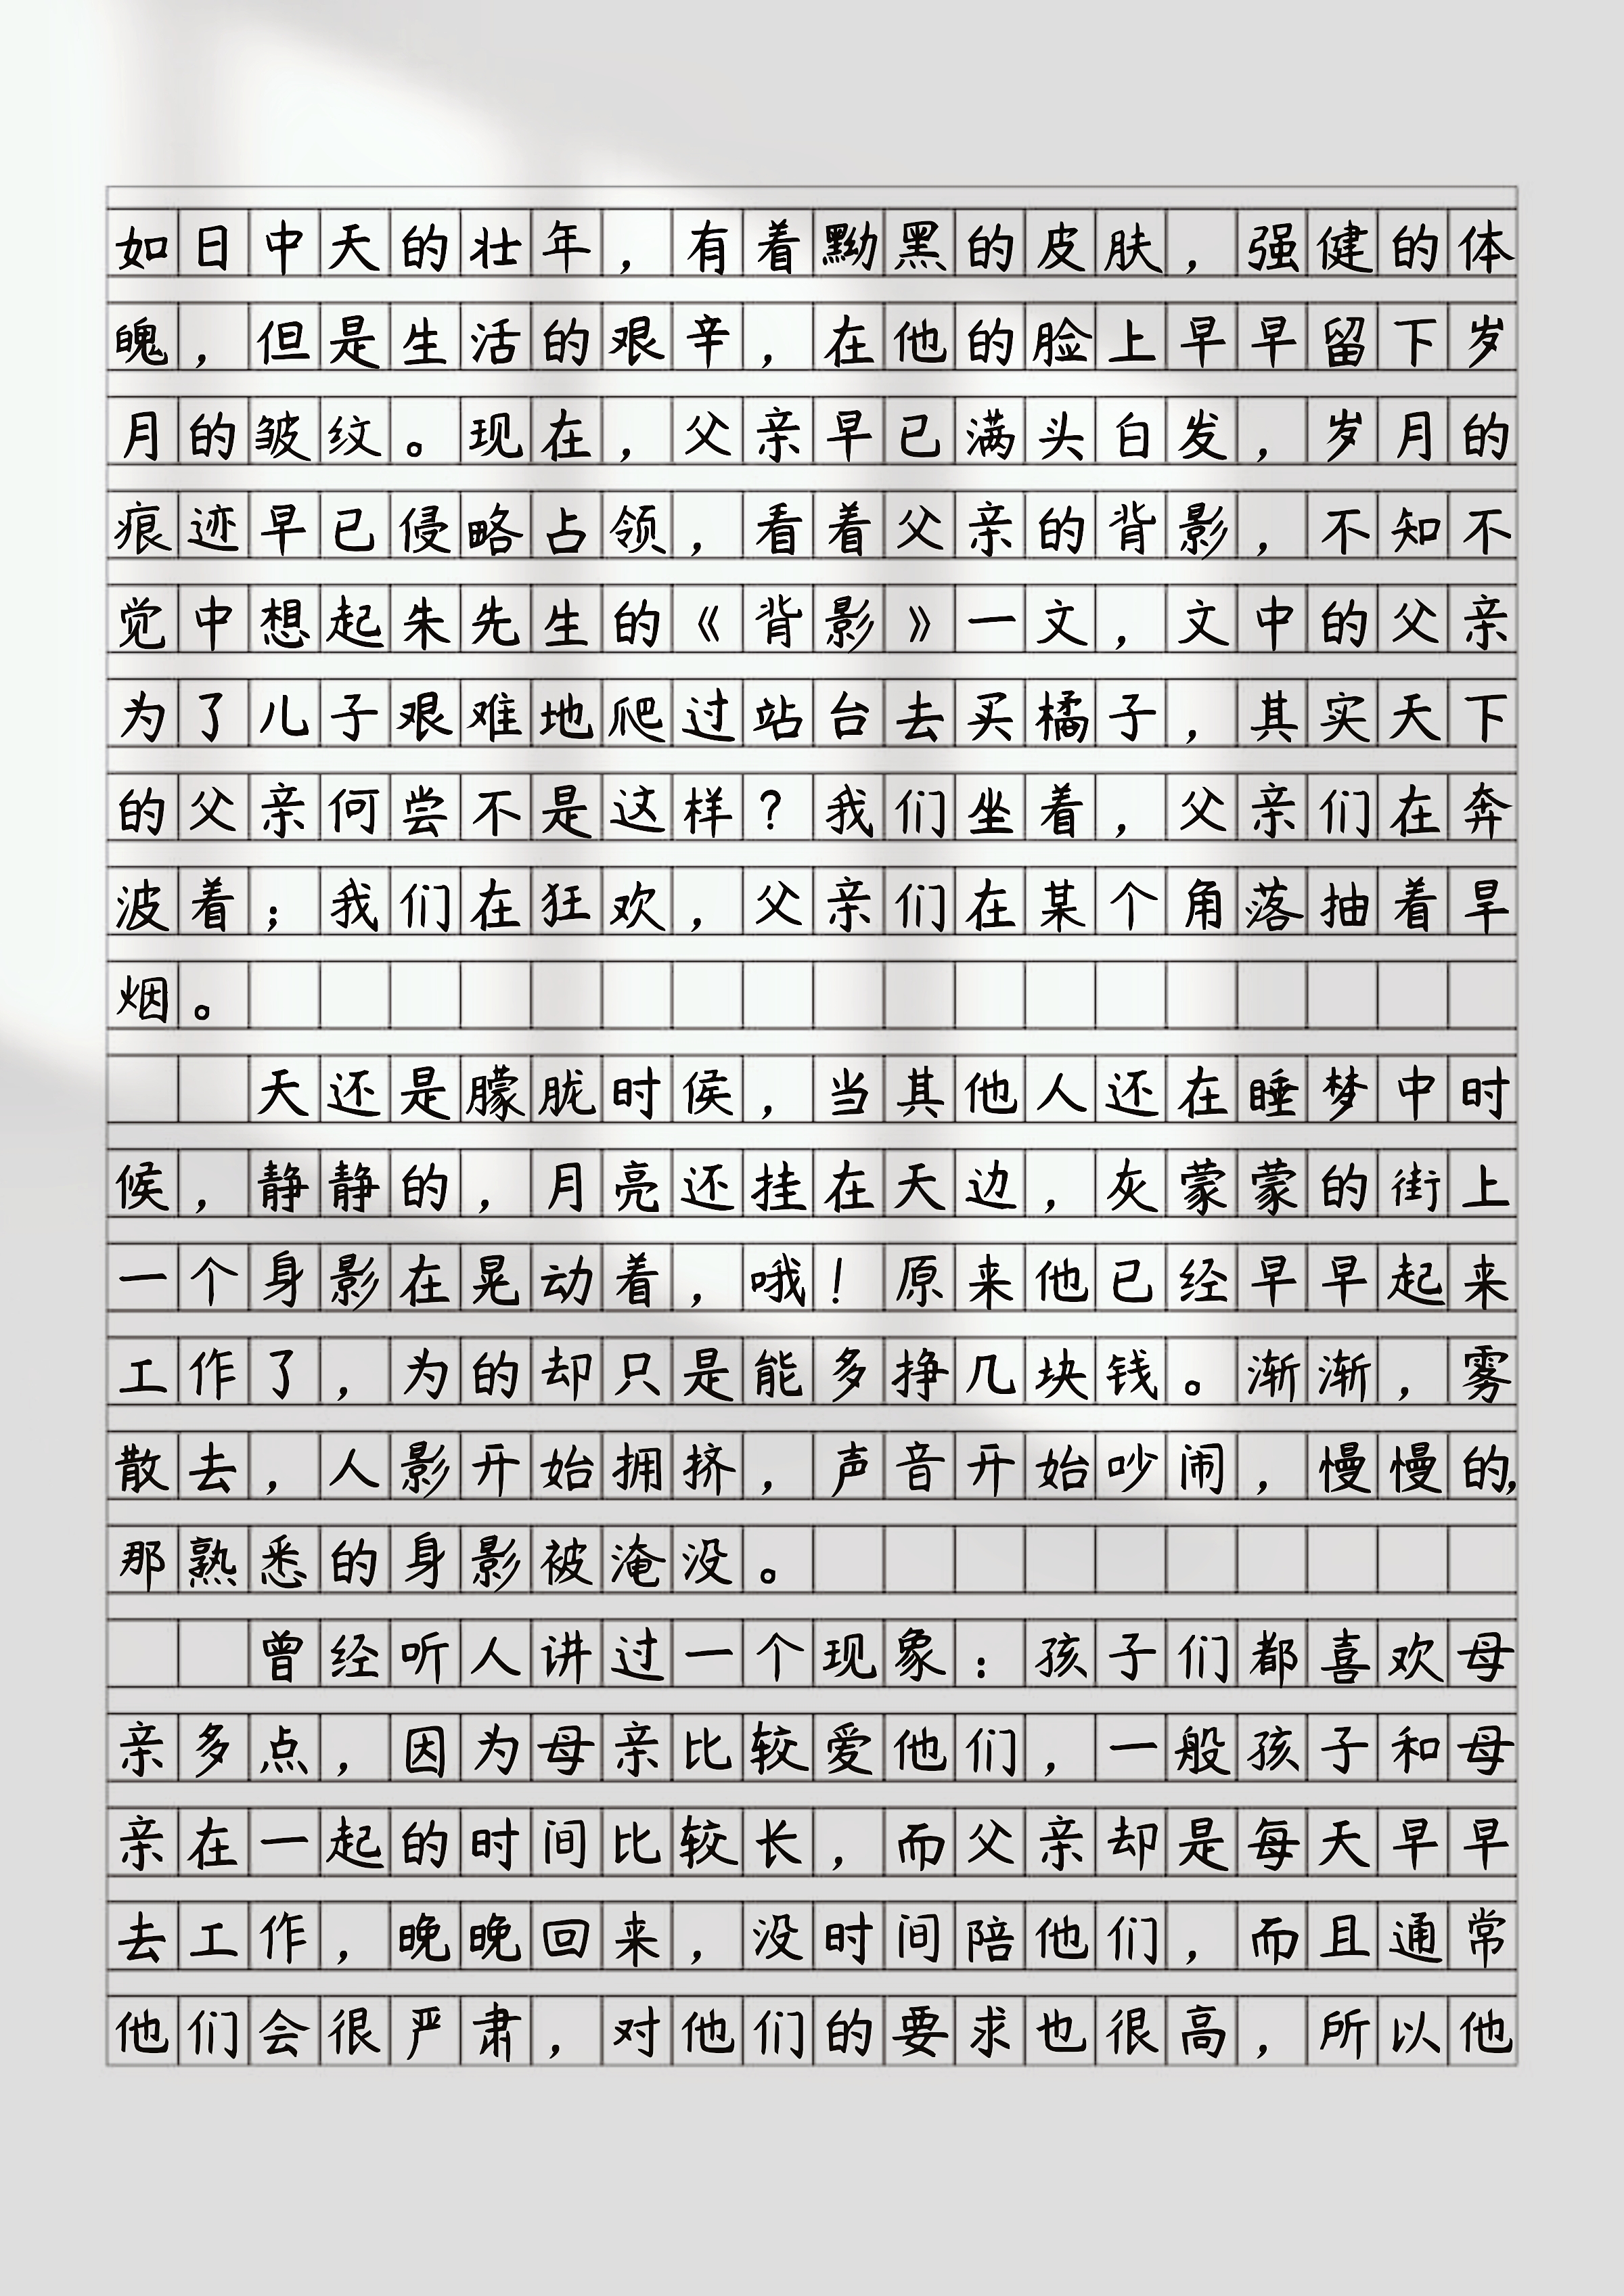 如日中天的壮年，有着黝黑的皮肤，强健的体
魄，但是生活的艰辛，在他的脸上早早留下岁
月的皱纹。现在，父亲早已满头白发，岁月的
痕迹早已侵略占领，看着父亲的背影，不知不
觉中想起朱先生的《背影》一文，文中的父亲
为了儿子艰难地爬过站台去买橘子，其实天下
的父亲何尝不是这样？我们坐着，父亲们在奔
波着；我们在狂欢，父亲们在某个角落抽着旱
烟。
天还是朦胧时侯，当其他人还在睡梦中时
候，静静的，月亮还挂在天边，灰蒙蒙的街上
一个身影在晃动着，哦！原来他已经早早起来
工作了，为的却只是能多挣几块钱。渐渐，雾
散去，人影开始拥挤，声音开始吵闹，慢慢的，
那熟悉的身影被淹没。
曾经听人讲过一个现象：孩子们都喜欢母
亲多点，因为母亲比较爱他们，一般孩子和母
亲在一起的时间比较长，而父亲却是每天早早
去工作，晚晚回来，没时间陪他们，而且通常
他们会很严肃，对他们的要求也很高，所以他